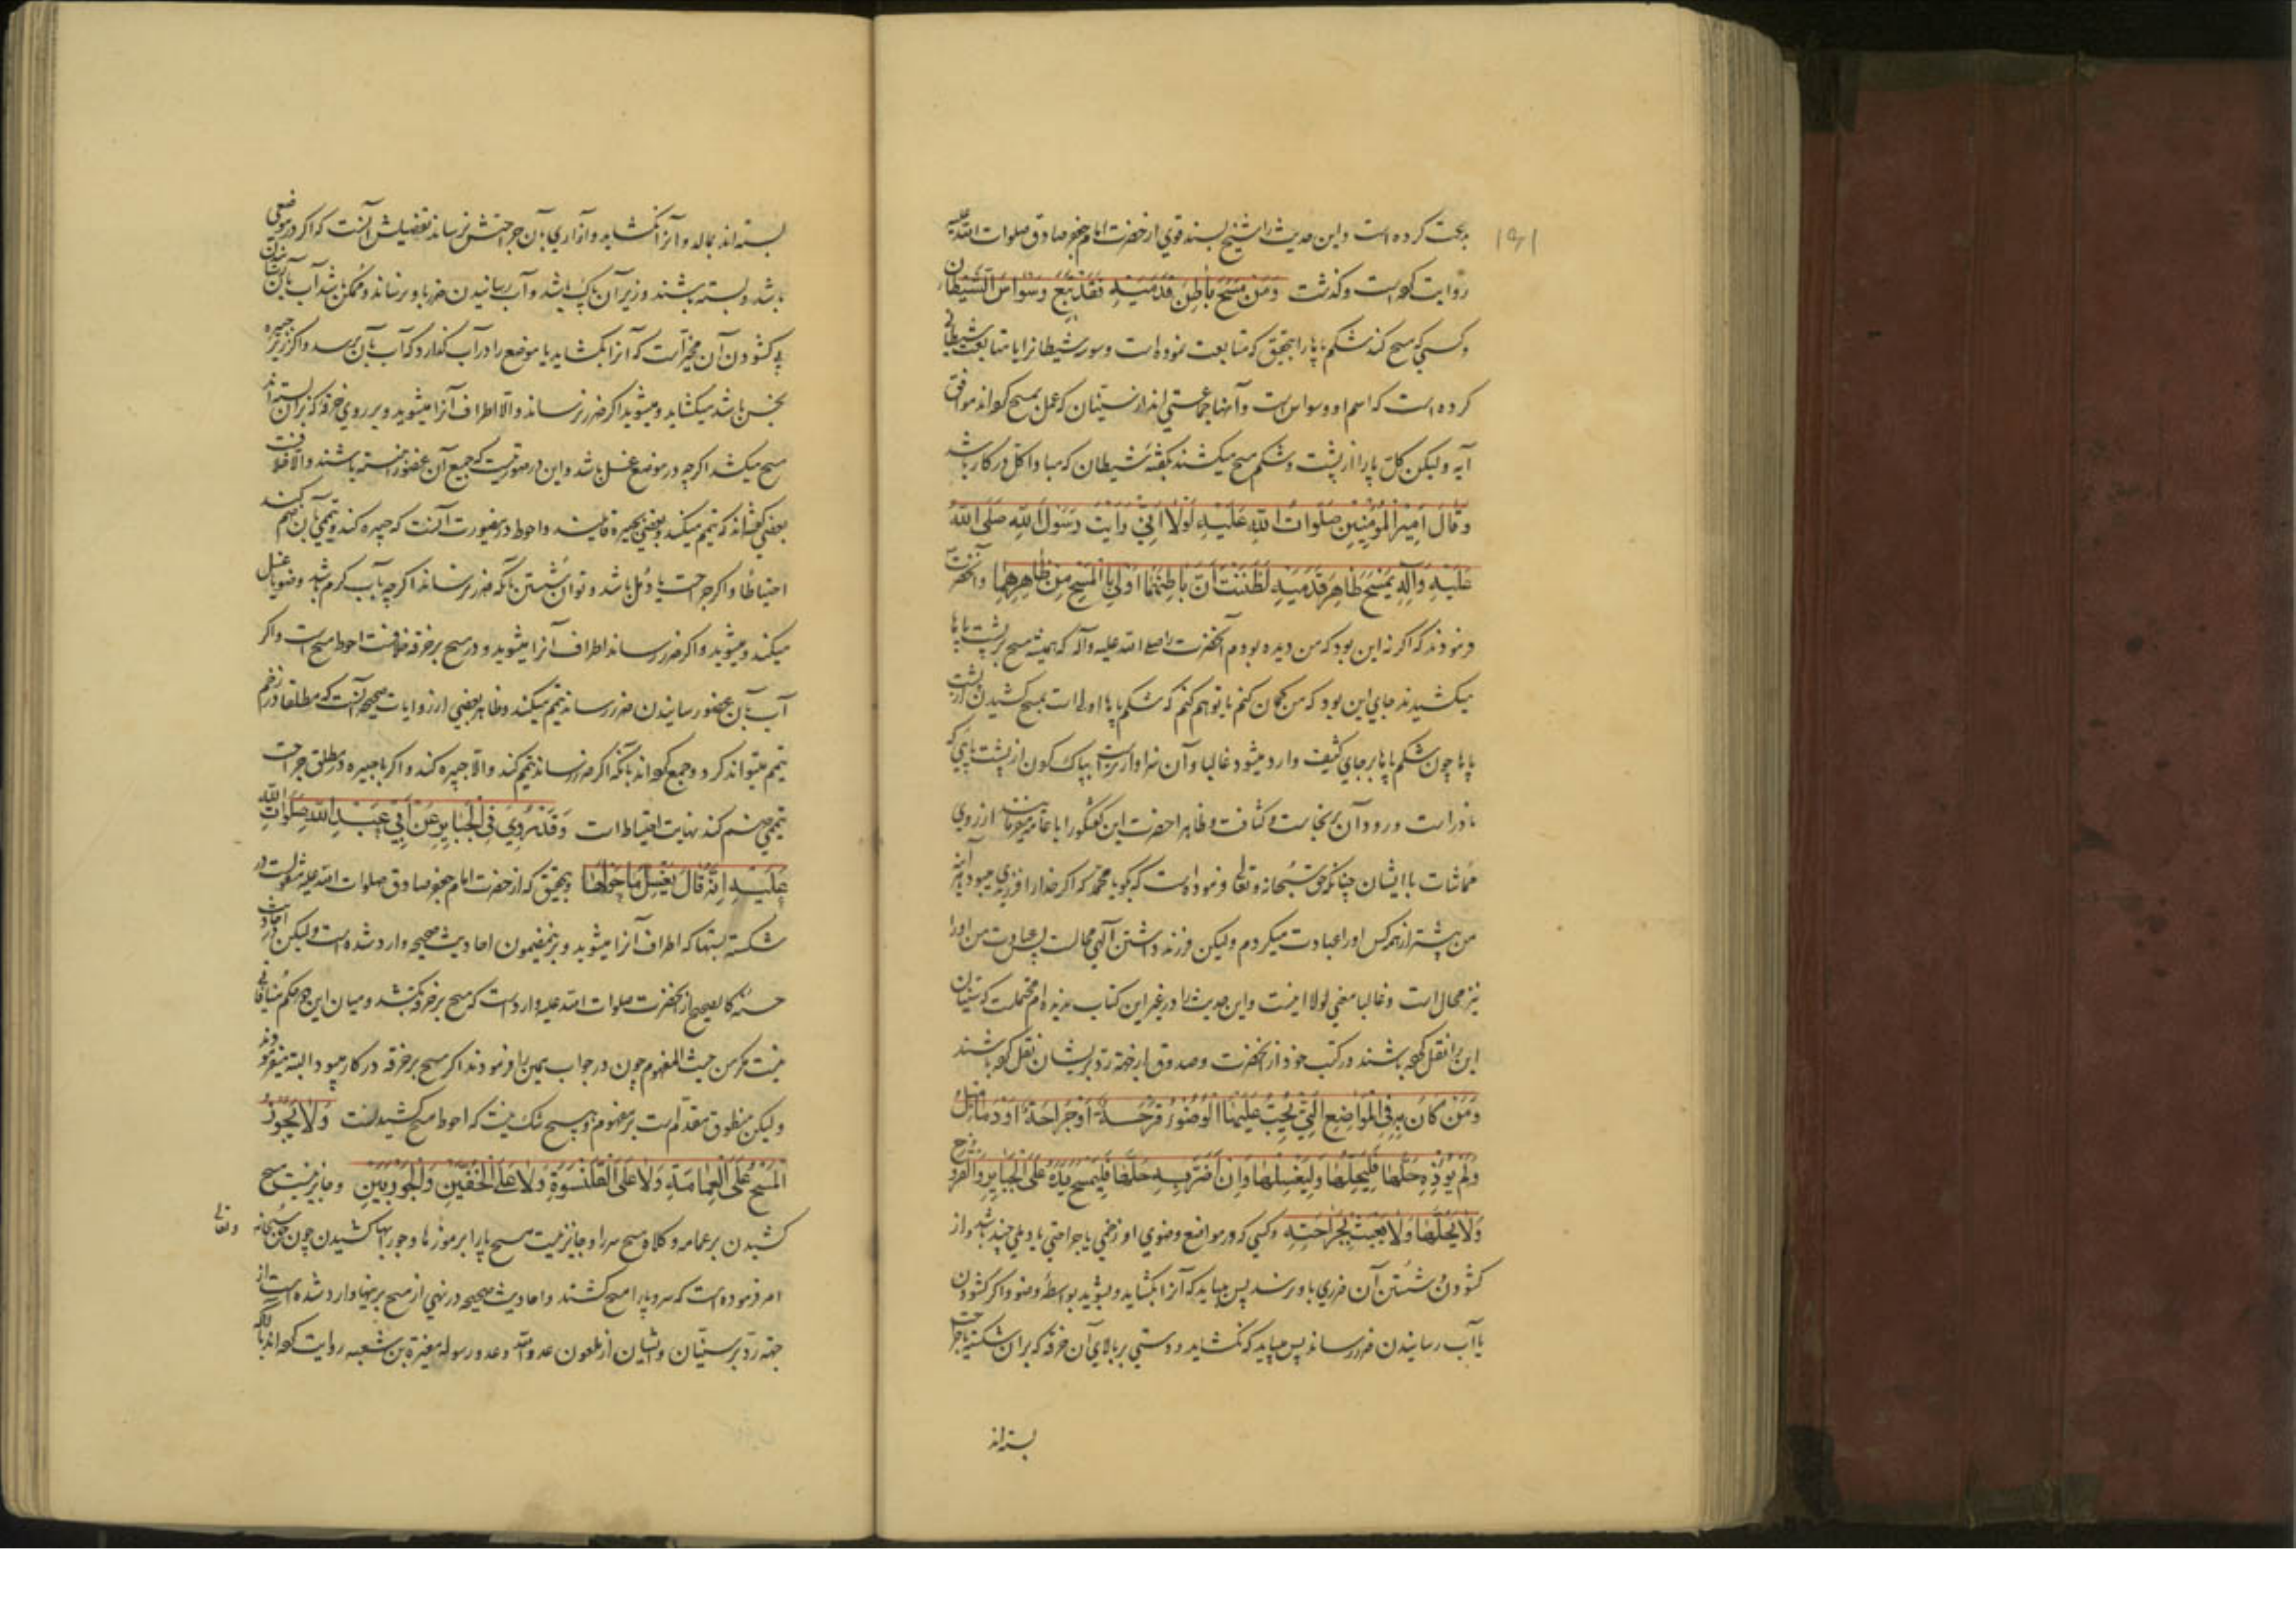 بدعت کرده است و این حدیث را شیخ بسند قوی از حضرت امام جعفر صادق صلوات الله علیه
روایت کرده است و گذشت وَمَنْ مَسَحَ بَاطِنَ قَدَمَیْهِ فَقَدْ تَبِعَ وَسْوَاسَ الشَّیْطَانِ
و کسی که مسح کند شکم پاها را بتحقیق که متابعت نموده است وسوسه شیطان را یا متابعت شیطانی
کرده است که اسم او وسواس است و آنها جماعتی اند از سنیان که عمل بمسح کرده اند موافق
آیه و لیکن کل پا را از پشت و شکم مسح میکشند بگفته شیطان که مبادا کل در کار باشد
وَقَالَ اَمِیرُ الْمُؤْمِنِینَ صَلَوَاتُ اللهِ عَلَیْهِ لَوْلَا اَنِّی رَاَیْتُ رَسُولَ اللهِ صَلَّی اللهُ
عَلَیْهِ وَآلِهِ یَمْسَحُ ظَاهِرَ قَدَمَیْهِ لَظَنَنْتُ اَنَّ بَاطِنَهُمَا اَوْلَی بِالْمَسْحِ مِنْ ظَاهِرِهِمَا و آنحضرت
فرمودند که اگر نه این بود که من دیده بودم آنحضرت را صلی الله علیه و آله که همیشه مسح بر پشت پاها
میکشیدند جای این بود که من گمان کنم یا توهم کنم که شکم پاها اولی است بمسح کشیدن از پشت
پاها چون شکم پاها بر جای کثیف وارد میشود غالبا و آن سزاوارتر است بپاک کردن از پشت پای که
نادر است ورود آن بر نجاست و کثافت و ظاهرا حضرت این گفتگو را با عامه میفرمایند از روی
مماشات با ایشان چنانکه حق سبحانه و تعالی فرموده است که بگو یا محمد که اگر خدا را فرزندی میبود آینه
من پیشتر از همه کس او را عبادت میکردم و لیکن فرزند داشتن آلهی محالست پس عبادت من او را
نیز محال است و غالبا معنی لولا اینست و این حدیث را در غیر این کتاب ندیده ام محتملست که سنیان
این را نقل کرده باشند در کتب خود از آنحضرت و صدوق از جهة رد بر ایشان نقل کرده باشند
وَمَنْ کَانَ بِهِ فِی الْمَوَاضِعِ الَّتِی یَجِبُ عَلَیْهَا الْوُضُوءُ قَرْحَةٌ اَوْ جِرَاحَةٌ اَوْ دَمَامِیلُ
وَلَمْ یُؤْذِهِ حَلُّهَا فَلْیَحُلَّهَا وَلْیَغْسِلْهَا وَاِنْ اَضَرَّ بِهِ حَلُّهَا فَلْیَمْسَحْ یَدَهُ عَلَی الْجَبَائِرِ وَالْقُرُوحِ
وَلَا یَحُلَّهَا وَلَا یَعْبَثْ بِجِرَاحَتِهِ و کسی که در مواضع وضوی او زخمی یا جراحتی یا دملی چند باشد و از
گشودن و شستن آن ضرری باو نرسد پس میباید که آنرا بگشاید و بشوید بواسطه وضو و اگر گشودن
یا آب رسانیدن ضرر رساند پس میباید که نگشاید و دستی بر بالای آن خرقه که بر آن شکسته یا جراحت
بسته اند
بسته اند بمالد و آنرا نگشاید و آزاری بآن جراحتش نرساند تفصیلش آنست که اگر در موضعی
باشد و بسته باشند و زیر آن پاک باشد و آب رسانیدن ضرر باو نرساند و ممکن باشد آب بآن رسانیدن
بی گشودن آن مخیر است که آنرا بگشاید یا موضع را در آب گذارد که آب بآن برسد و اگر زیر جبیره
نجس باشد میگشاید و میشوید اگر ضرر نرساند و الا اطراف آنرا میشوید و بر روی خرقه که بر آن بسته اند
مسح میکشد اگر چه در موضع غسل باشد و این در صورتیست که جمیع آن عضو را نبسته باشند و الا خلافست
بعضی گفته اند که تیمم میکند و بعضی بجبیره قایلند و احوط در این صورت آنست که جبیره کند و تیممی بآن ضم کند
احتیاطا و اگر جراحت یا دمل باشد و توان شستن بآنکه ضرر نرساند اگر چه بآب گرم باشد وضو یا غسل
میکند و میشوید و اگر ضرر رساند اطراف آنرا میشوید و در مسح بر خرقه خلافست احوط مسح است و اگر
آب بآن عضو رسانیدن ضرر رساند تیمم میکند و ظاهر بعضی از روایات صحیحه آنست که مطلقا در زخم
تیمم میتواند کرد و جمع کرده اند بآنکه اگر ضرر رساند تیمم کند و الا جبیره کند و اگر با جبیره در مطلق جراحت
تیممی ضم کند نهایت احتیاط است وَقَدْ رُوِیَ فِی الْجَبَائِرِ عَنْ اَبِی عَبْدِ اللهِ صَلَوَاتُ اللهِ
عَلَیْهِ اَنَّهُ قَالَ یَغْسِلُ مَا حَوْلَهَا و بتحقیق که از حضرت امام جعفر صادق صلوات الله علیه منقولست در
شکسته بستها که اطراف آنرا میشوید و بر این مضمون احادیث صحیحه وارد شده است و لیکن در احادیث
حسنه کالصحیح از آنحضرت صلوات الله علیه وارد است که مسح بر خرقه بکشد و میان این دو حکم منافاتی
نیست مگر من حیث المفهوم چون در جواب همین را فرمودند اگر مسح بر خرقه در کار میبود البته میفرمودند
و لیکن منطوق مقدم است بر مفهوم و هیچ شک نیست که احوط مسح کشیدنست وَلَا یَجُوزُ
الْمَسْحُ عَلَی الْعِمَامَةِ وَلَا عَلَی الْقَلَنْسُوَةِ وَلَا عَلَی الْخُفَّیْنِ وَالْجَوْرَبَیْنِ و جایز نیست مسح
کشیدن بر عمامه و کلاه مسح سر را و جایز نیست مسح پا را بر موزها و جورابها کشیدن چون حق سبحانه و تعالی
امر فرموده است که سر و پا را مسح کشند و احادیث صحیحه در نهی از مسح بر اینها وارد شده است از
جهة رد بر سنیان و ایشان از ملعون عدو الله و عدو رسوله مغیرة بن شعبه روایت کرده اند با آنکه